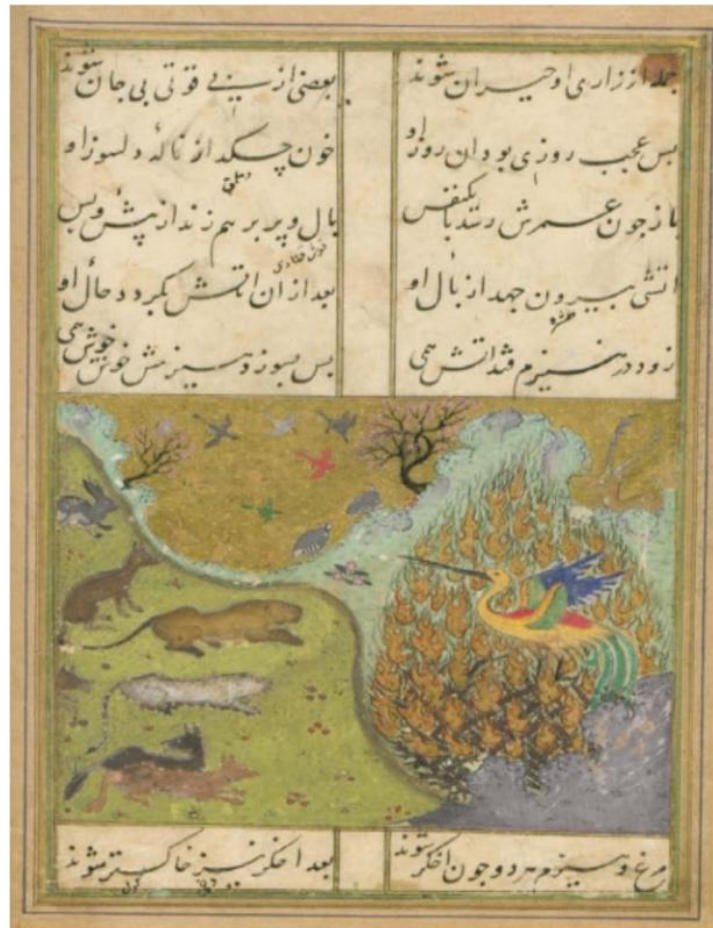 جمله از زاری او حیران شوند بعضی از بی قوتی بی جان شوند
بس عجب روزی بود ان روز او خون چکد از نالهٔ دلسوز او
باز جون عمرش رسد با یکنفس بال و پر بر هم زند از پیش و پس
اتشی بیرون جهد از بال او بعد از ان اتش بگردد حال او
زود در هیزم فتد اتش همی بس بسوزد هیزمش خوش خوش همی
مرغ و هیزم هر دو جون اخکر شوند بعد اخکر نیز خاکستر شوند